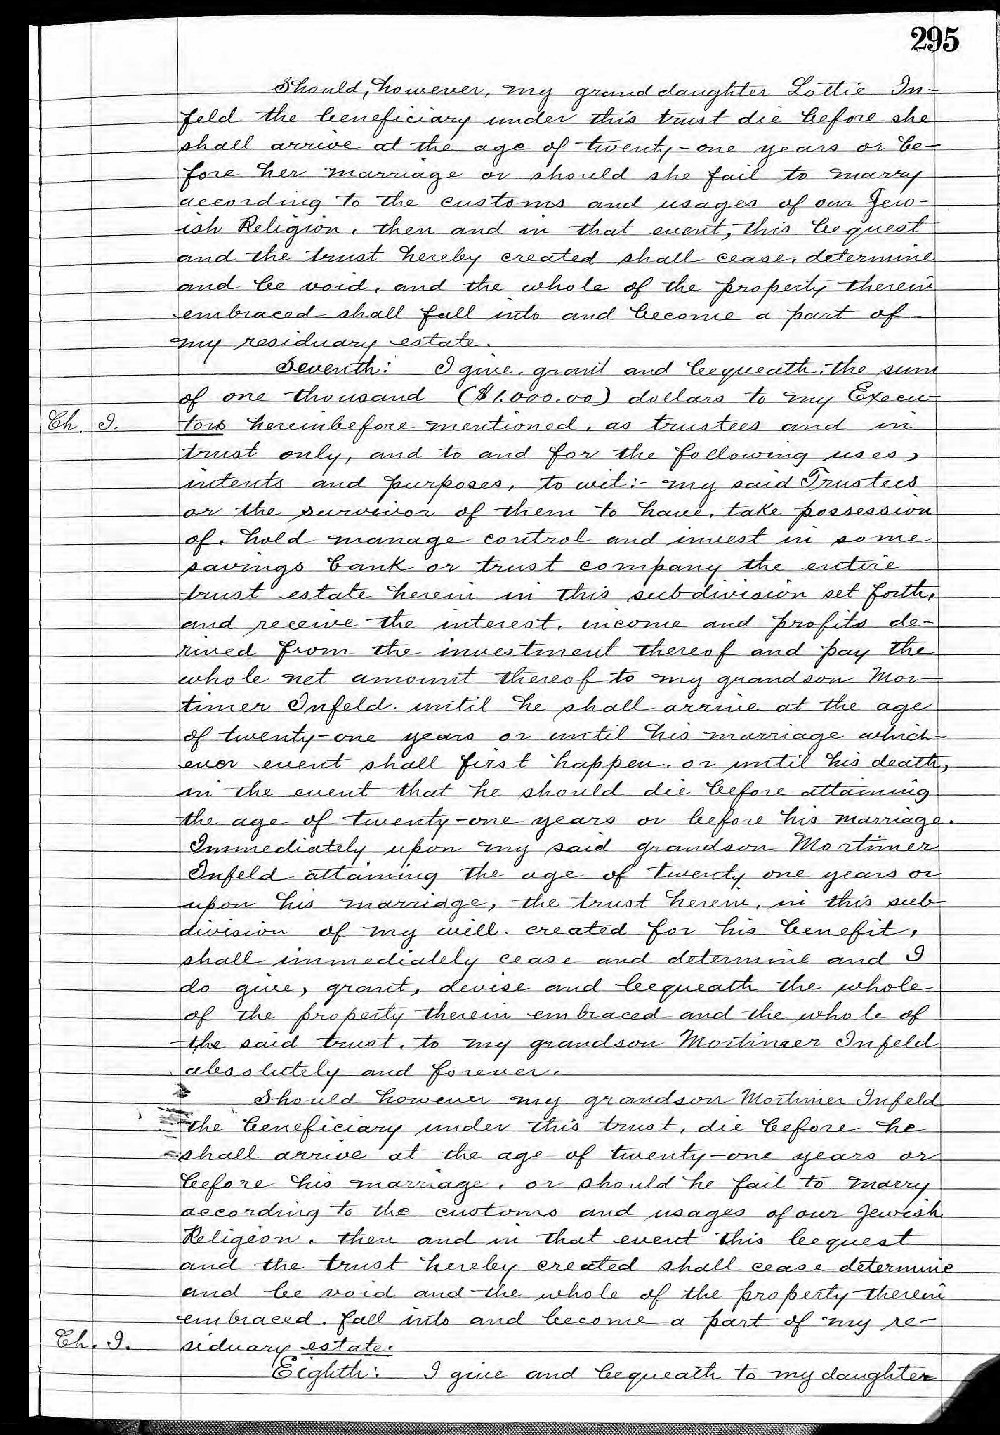 295
Should, however, my granddaughter Lottie In-
feld the beneficiary under this trust die before she
shall arrive at the age of twenty-one years or be-
fore her marriage or should she fail to marry
according to the customs and usages of our Jew-
ish Religion, then and in that event, this bequest
and the trust hereby created shall cease, determine
and be void, and the whole of the property therein
embraced shall fall into and become a part of
my residuary estate.
Seventh: I give, grant and bequeath, the sum
of one thousand ($1.000.00) dollars to my Execu-
Ch. I. tors hereinbefore mentioned, as trustees and in
trust only, and to and for the following uses,
intents and purposes, to wit:- my said Trustees
or the survivor of them to have, take possession
of, hold manage control and invest in some
savings bank or trust company the entire
trust estate herein in this subdivision set forth,
and receive the interest, income and profits de-
rived from the investment thereof and pay the
whole net amount thereof to my grandson Mor-
timer Infeld, until he shall arrive at the age
of twenty-one years or until his marriage which-
ever event shall first happen, or until his death,
in the event that he should die before attaining
the age of twenty-one years or before his marriage.
Immediately upon my said grandson Mortimer
Infeld attaining the age of twenty one years or
upon his marriage, the trust herein, in this sub-
division of my will, created for his benefit,
shall immediately cease and determine and I
do give, grant, devise and bequeath the whole
of the property therein embraced and the whole of
the said trust, to my grandson Mortimer Infeld
absolutely and forever.
Should however my grandson Mortimer Infeld
the beneficiary under this trust, die before he
shall arrive at the age of twenty-one years or
before his marriage, or should he fail to marry
according to the customs and usages of our Jewish
Religion, then and in that event this bequest
and the trust hereby created shall cease determine
and be void and the whole of the property therein
embraced, fall into and become a part of my re-
Ch. I. siduary estate.
Eighth: I give and bequeath to my daughter